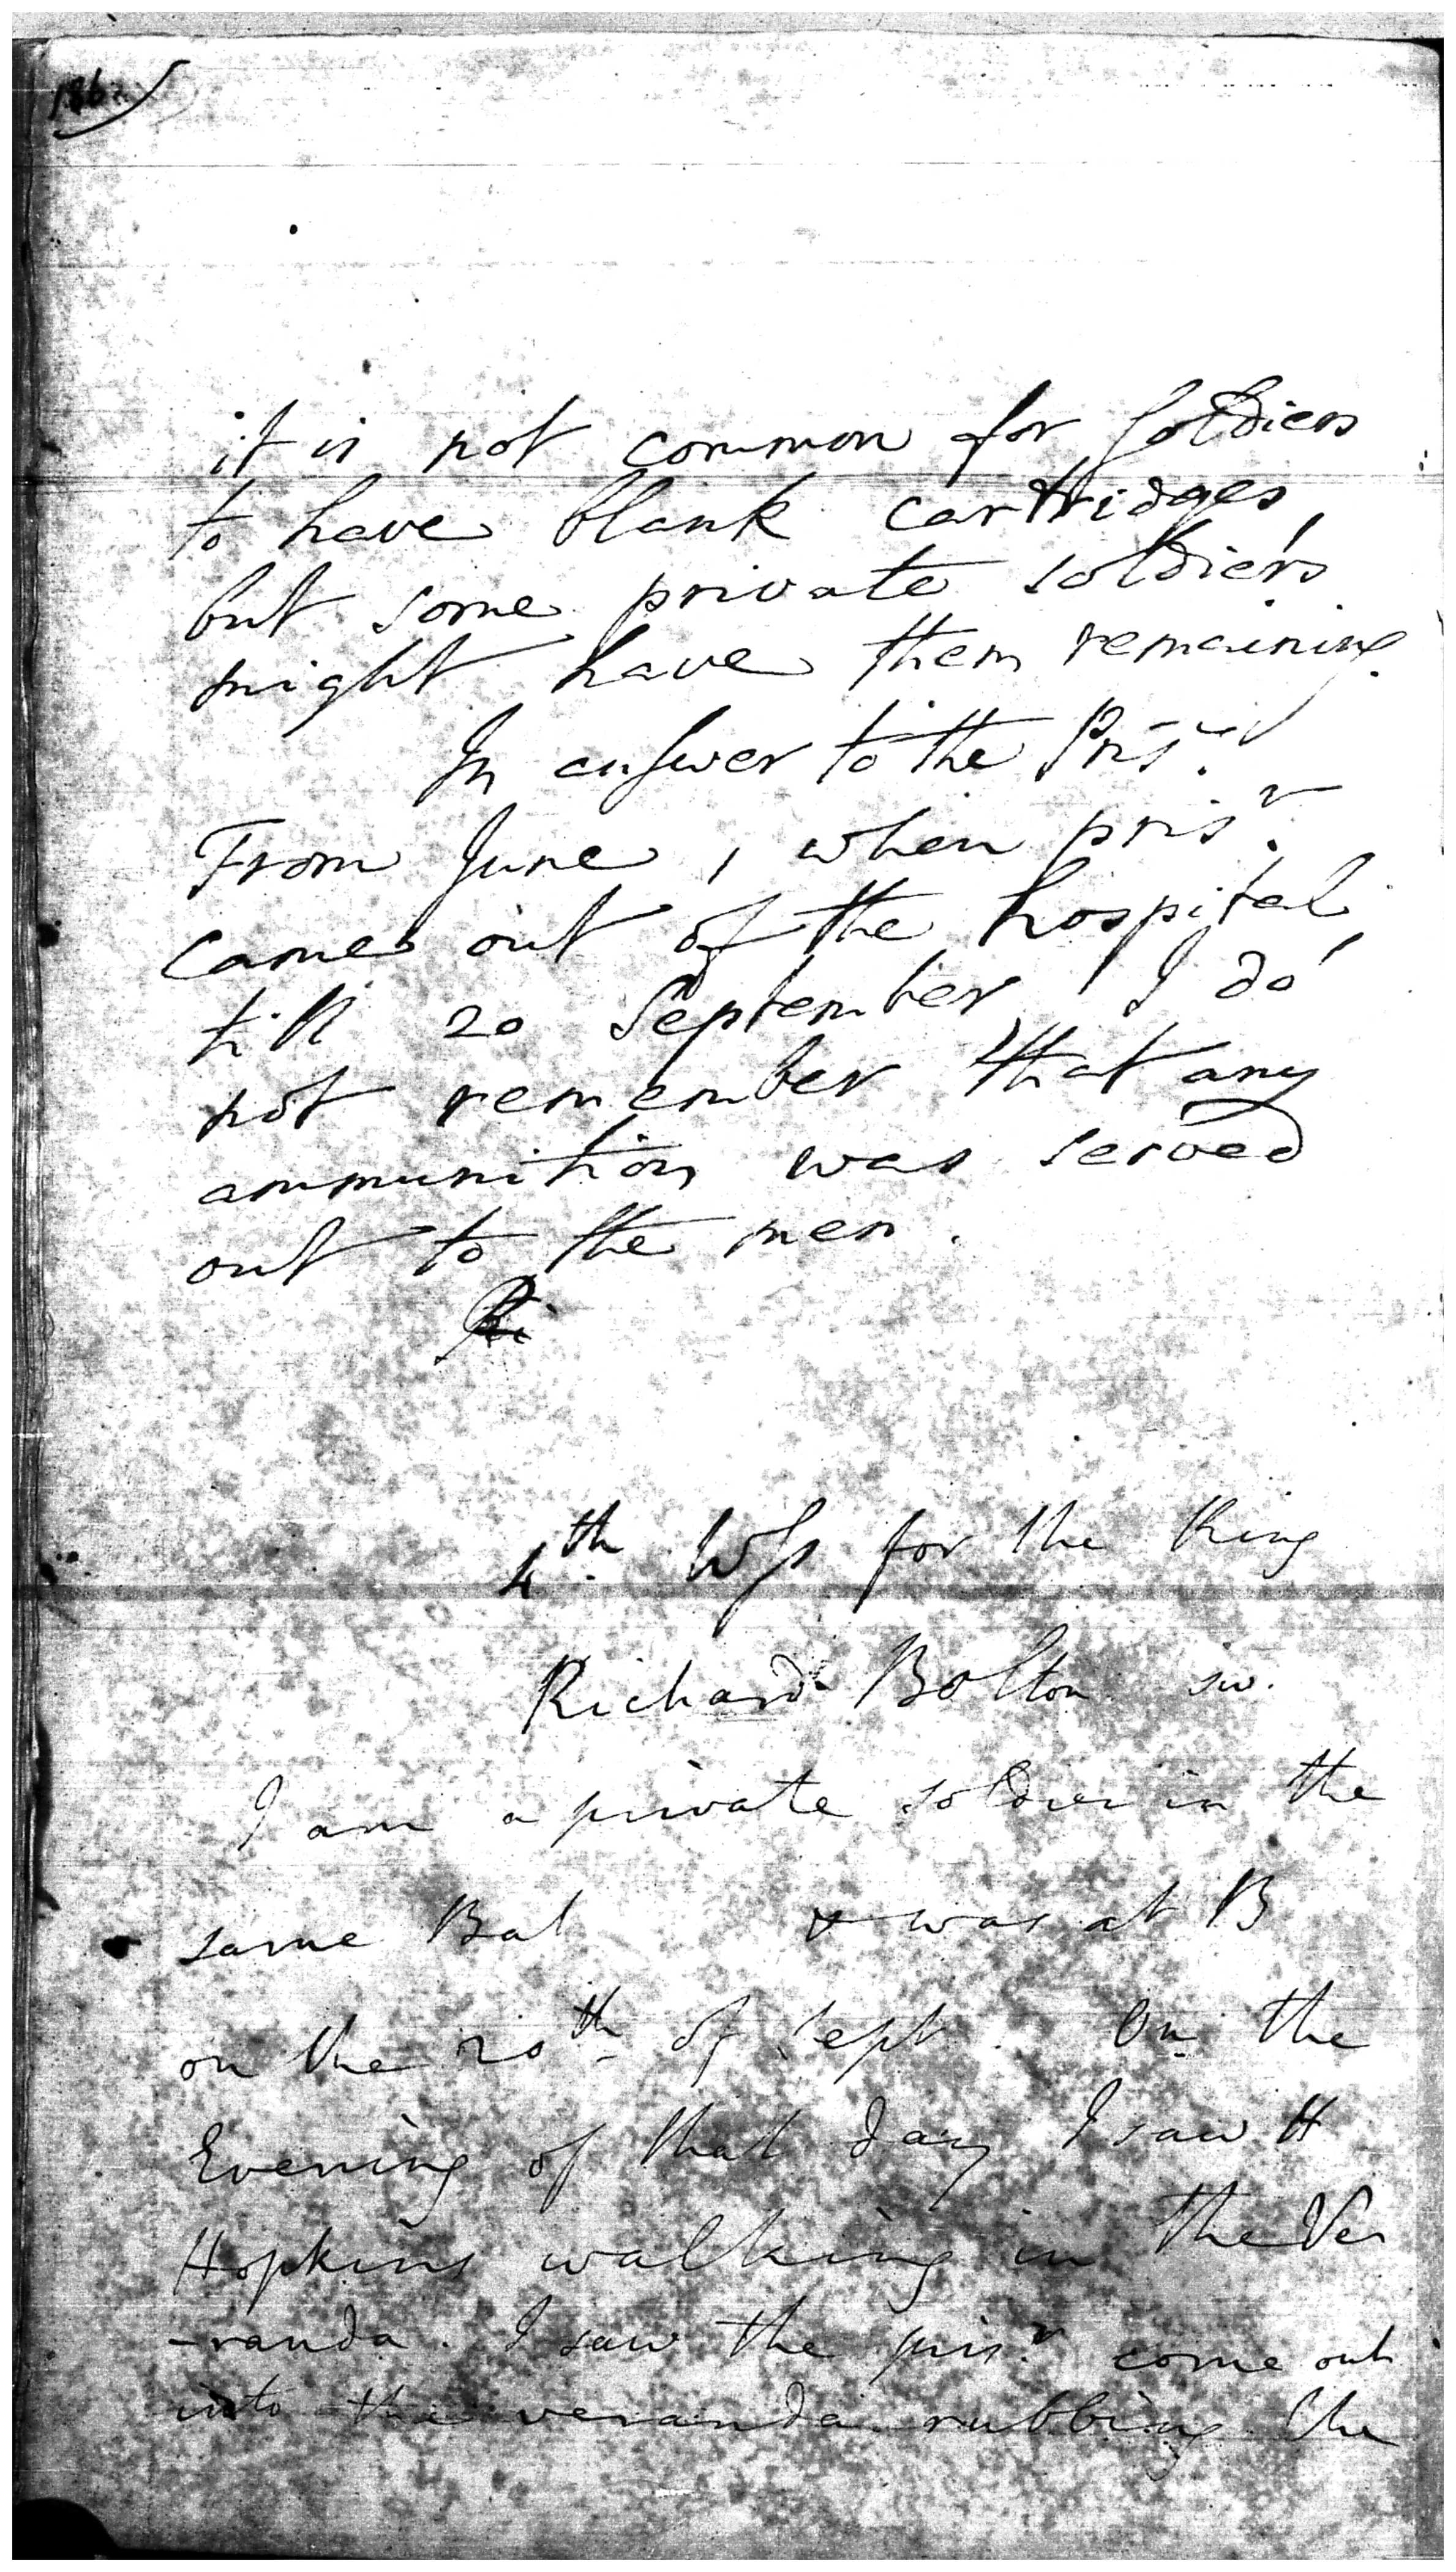 it is not common for soldiers
to have blank cartridges,
but some private soldiers
might have them remaining.
In answer to the Prisr.
From June, when prisr.
came out of the hospital,
till 20 September, I do
not remember that any
ammunition was served
out to the men.
4th. Wss for the King
Richard Bolton sw.
I am a private soldier in the
same Bat & was at B
on the 20th of Sept. On the
Evening of that day I saw H
Hopkins walking in the Ve
-randa. I saw the prisr. come out
into the veranda rubbing the